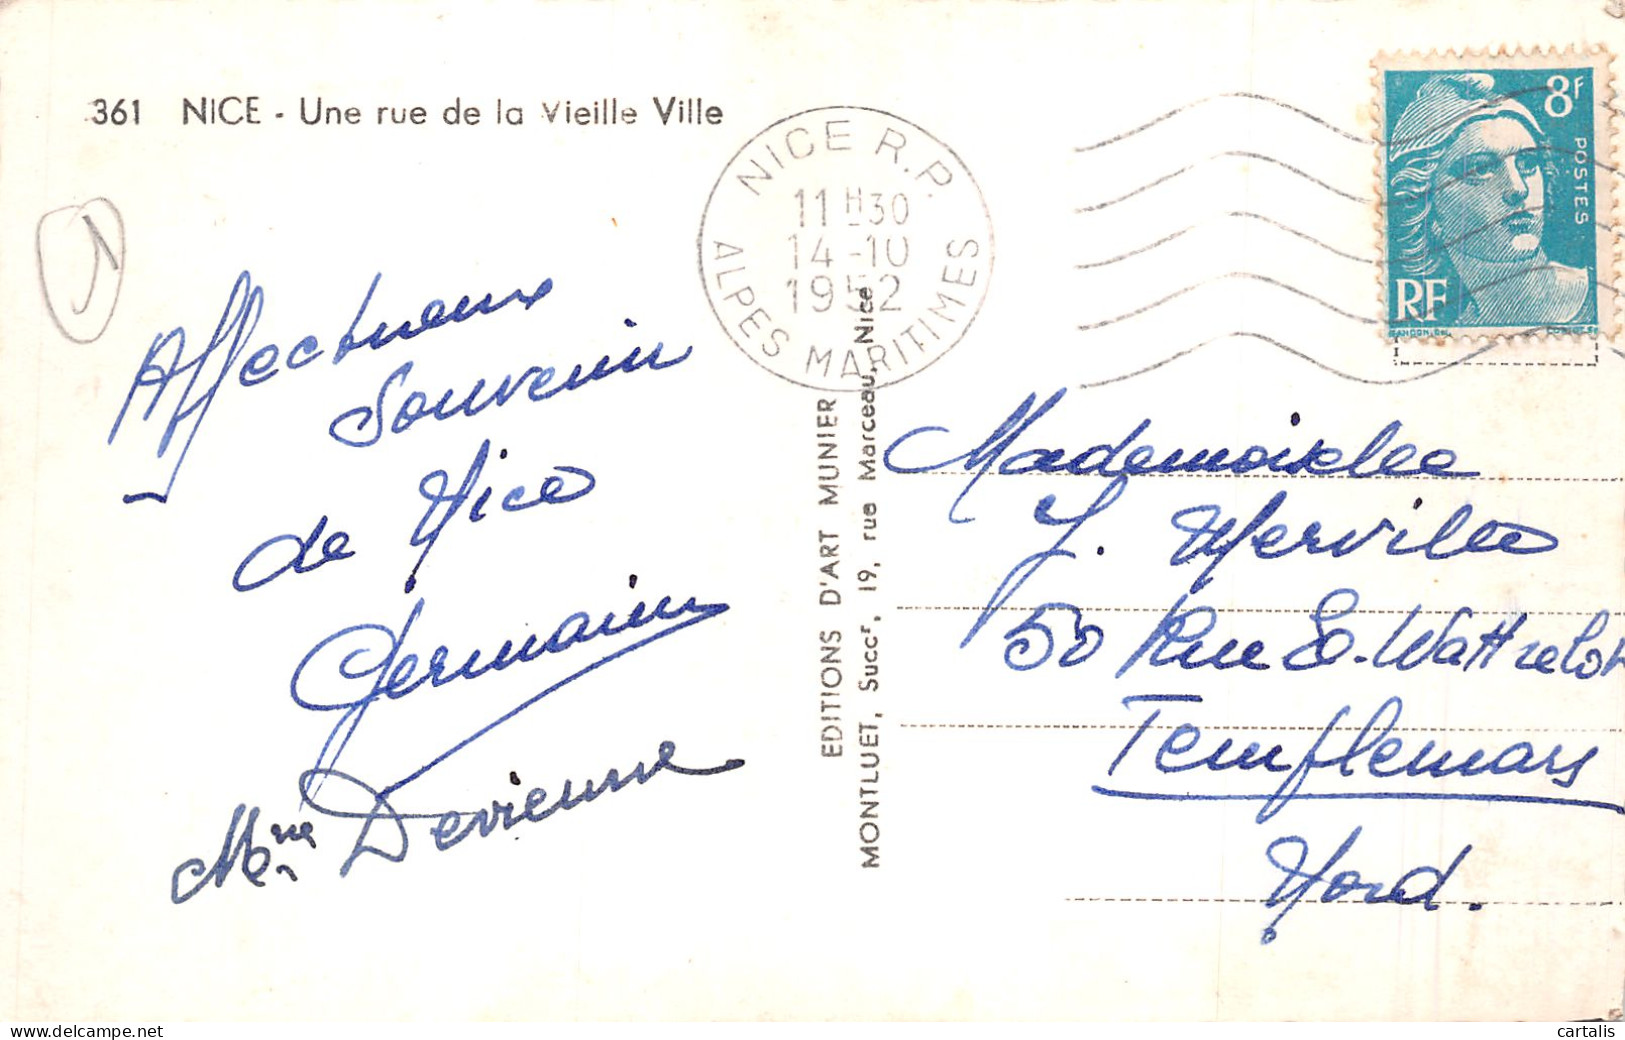 361 NICE - Une rue de la Vieille Ville
NICE R.P.
11H30
14-10
1952
ALPES MARITIMES
8F
POSTES
RF
GANDON.DEL
Affectueux
Souvenir
de Nice
Germaine
Mme Devienne
EDITIONS D'ART MUNIER
MONTLUET, Succr, 19, rue Marceau, Nice
Mademoiselle
J. Merville
50 Rue
Templemars
Nord.
cartalis